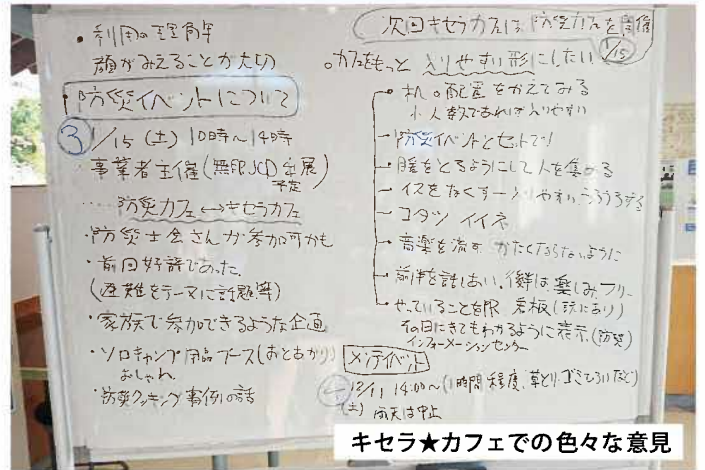 ・利用の理解
顔がみえることが大切
・防災イベントについて
③ 1/15 (土) 10時〜14時
・事業者主催(無印JCD出展)
予定
・・・・防災カフェ←→キセラカフェ
・防災士会さんが参加可かも
・前回好評であった。
(避難をテーマに話題等)
・家族で参加できるような企画
・ソロキャンプ用品ブース(おとあがり)
おしゃれ
・防災クッキング 事例の話
次回キセラカフェは、防災カフェを開催
1/15
。カフェをもっと 入りやすい形にしたい
机の配置をかえてみる
小人数であれば入りやすい
防災イベントとセットで!
暖をとるようにして人を集める
イスをなくすー入りやすいうろうろする
コタツ イイネ
音楽を流す かたくならないように
前半を話しあい、後半は楽しみフリー
やっていることをPR 看板(既にあり)
その日にきてもわかるように表示(防災)
インフォーメーションセンター
メンテイベント
④ 12/11 14:00〜(1時間程度、草とり、ゴミひろいなど)
(土) 雨天は中止
キセラ★カフェでの色々な意見